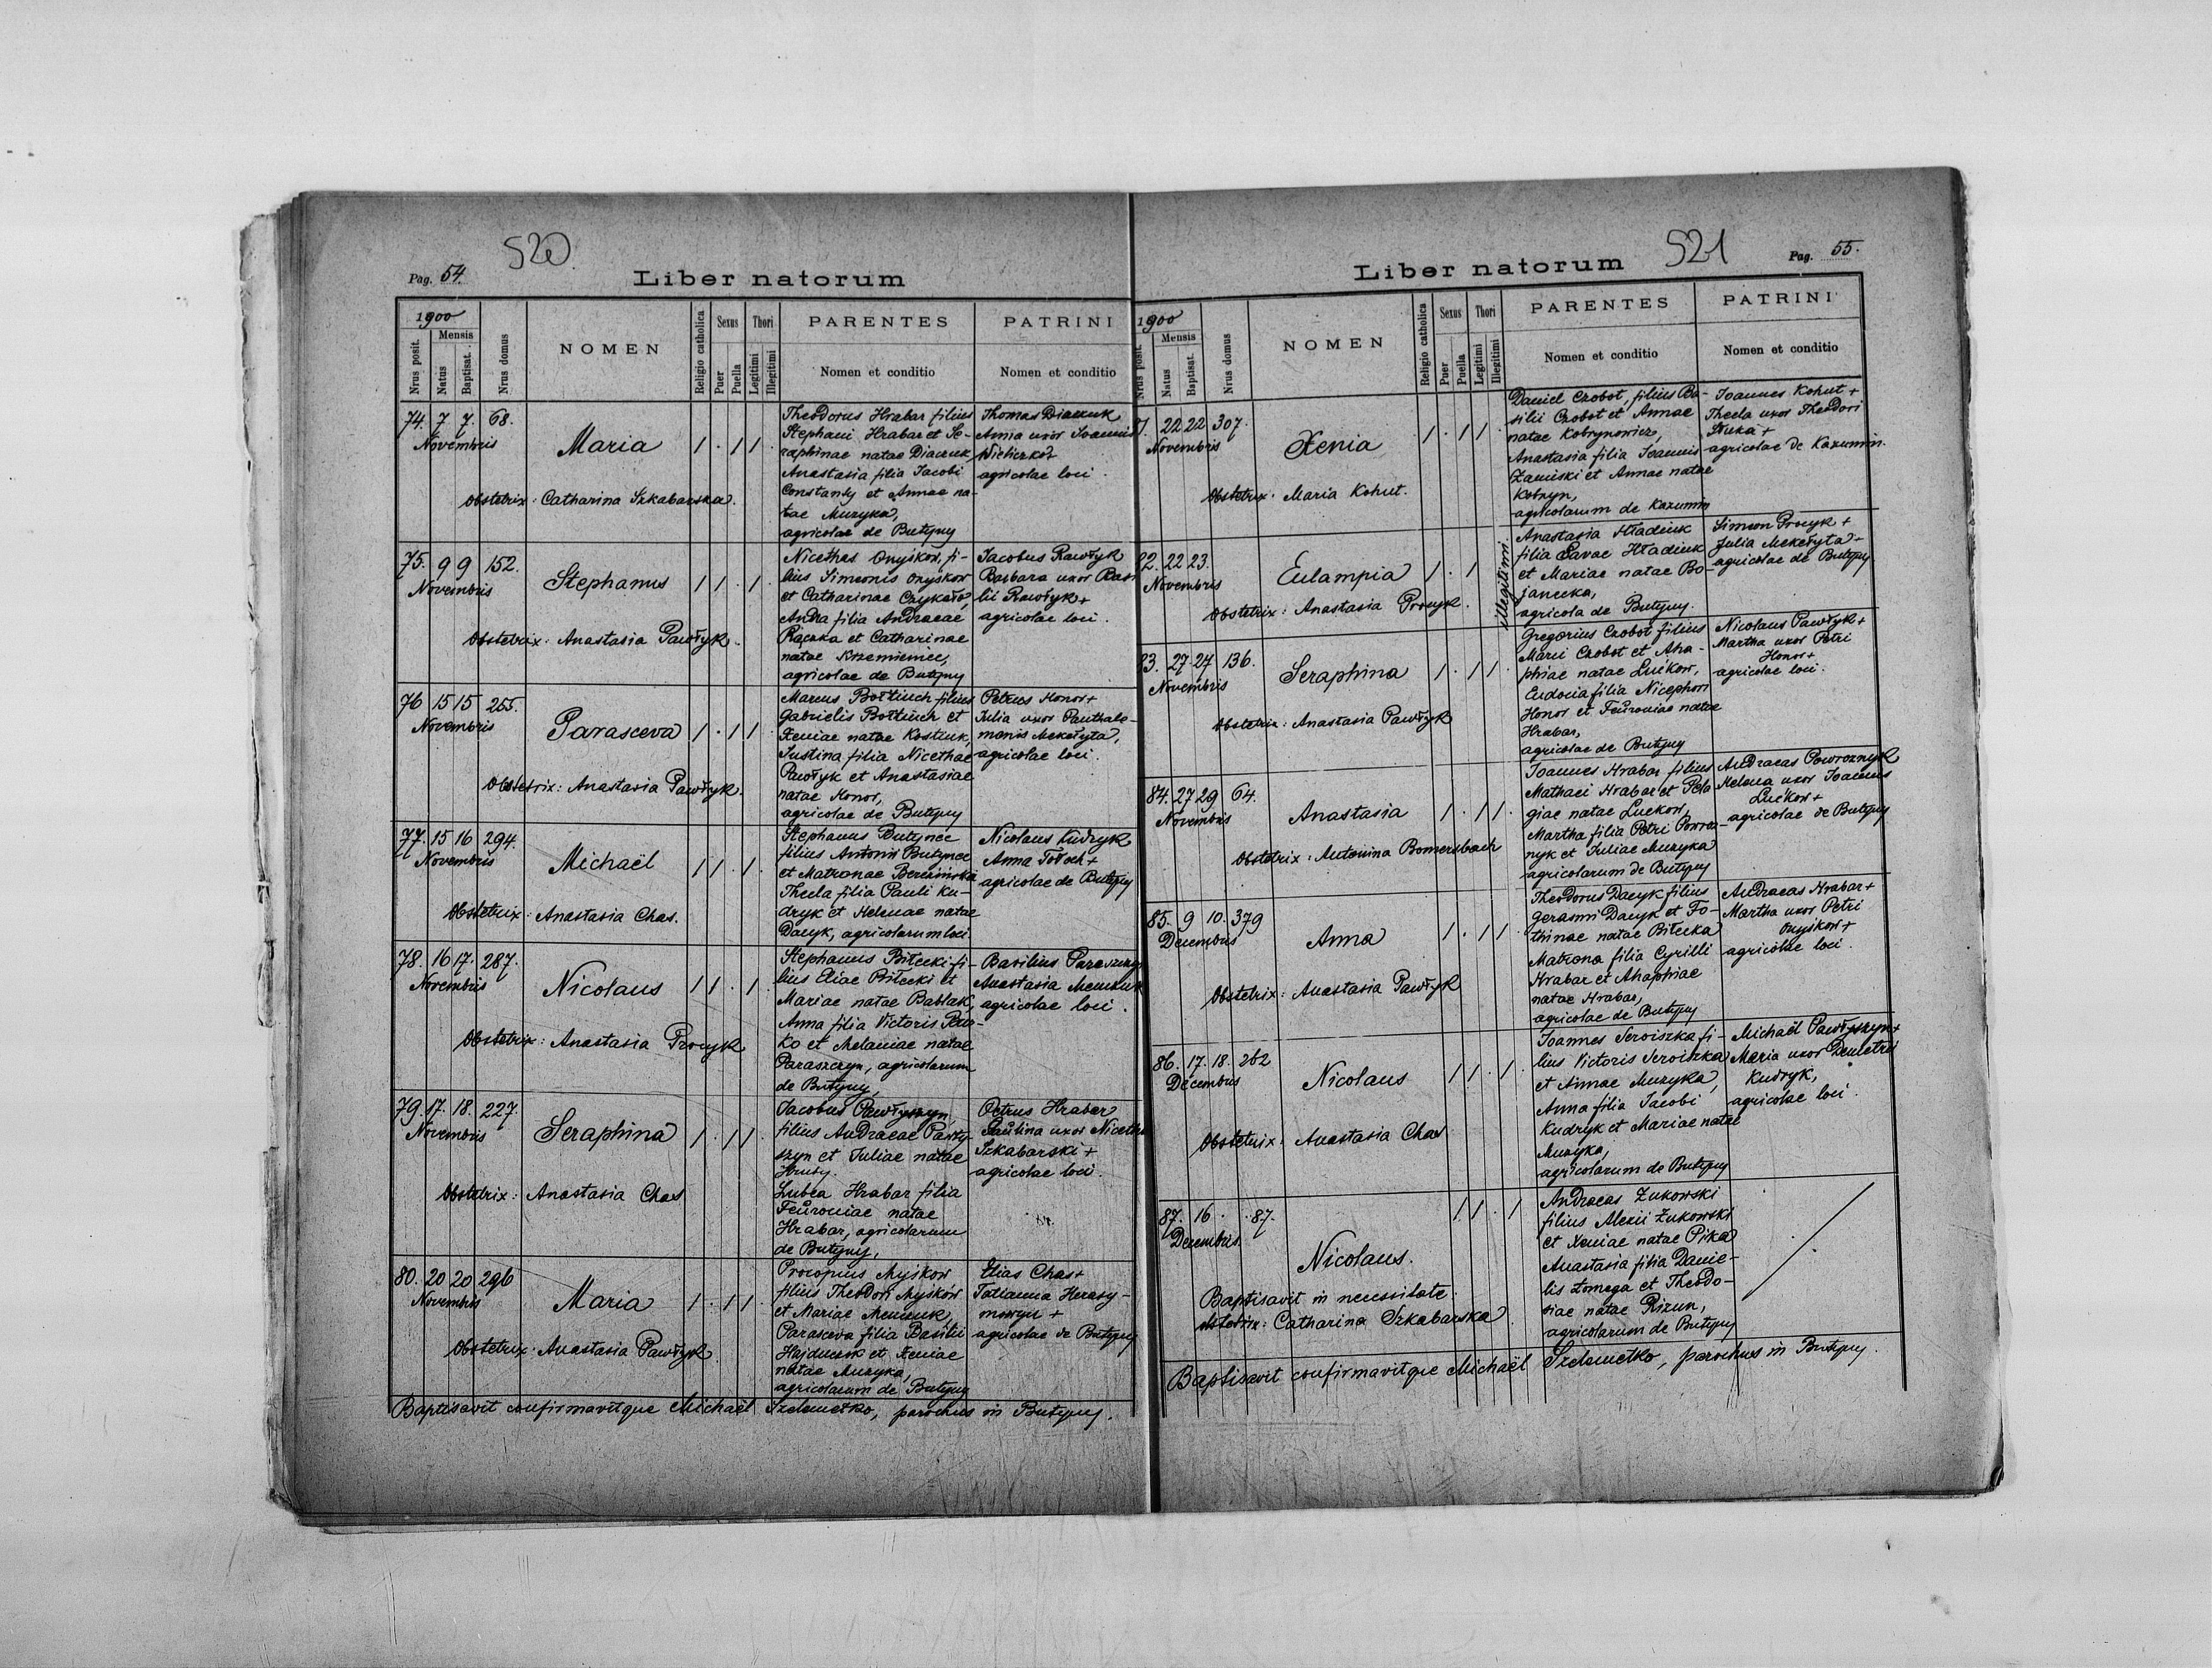 520
Pag. 54.
Liber natorum
1900
Mensis
Nrus posit.
Natus
Baptisat.
Nrus domus
NOMEN
Religio catholica
Sexus
Puer
Puella
Thori
Legitimi
Illegitimi
PARENTES
Nomen et conditio
PATRINI
Nomen et conditio
74. 7 7. 68.
Novembris
Maria
1 . 1 1 .
Obstetrix: Catharina Szkabarska.
Theodorus Hrabar filius
Stephani Hrabar et Se-
raphinae natae Diaczuk,
Anastasia filia Jacobi
Constanty et Annae na-
tae Muzyka,
agricolae de Butyny
Thomas Diaczuk
Anna uxor Joannis
agricolae loci.
75. 9 9 152.
Novembris
Stephanus
1 1 . 1 .
Obstetrix: Anastasia Pawłyk.
Nicethas Onyśkow, fi-
lius Simeonis Onyśkow
et Catharinae Czykało,
Anna filia Andraeae
Rączka et Catharinae
natae Krzemieniec,
agricolae de Butyny
Jacobus Rawłyk
Barbara uxor Basi
lii Rawłyk +
agricolae loci.
76 15 15 255.
Novembris
Parasceva
1 . 1 1 .
Obstetrix: Anastasia Pawłyk.
Marcus Bołtiuch filius
Gabrielis Bołtiuch et
Xeniae natae Kostiuk,
Justina filia Nicethae
Pawłyk et Anastasiae
natae Honor,
agricolae de Butyny
Petrus Honor +
Julia uxor Panthale-
monis Mekełyta,
agricolae loci.
77. 15 16 294.
Novembris
Michaël
1 1 . 1 .
Obstetrix: Anastasia Chas.
Stephanus Butynec
filius Antonii Butynec
et Matronae Berezinska
Thecla filia Pauli Ku-
dryk et Helenae natae
Dacyk, agricolarum loci.
Nicolaus Kudryk
Anna Tołoch +
agricolae de Butyny
78. 16 17. 287.
Novembris
Nicolaus
1 1 . 1 .
Obstetrix: Anastasia Procyk
Stephanus Biłecki fi-
lius Eliae Biłecki et
Mariae natae Bablak,
Anna filia Victoris
ko et Melaniae natae
Paraszczyn, agricolarum
de Butyny,
Basilius
Anastasia
agricolae loci.
79. 17. 18. 227.
Novembris
Seraphina
1 . 1 1 .
Obstetrix: Anastasia Chas
Jacobus Pawłyszyn
filius Andraeae Pawły-
szyn et Juliae natae
Lubca Hrabar filia
Feŭroniae natae
Hrabar, agricolarum
de Butyny,
Petrus Hrabar
Paŭlina uxor Nicetha
Szkabarski +
agricolae loci.
80. 20 20 296
Novembris
Maria
1 . 1 1 .
Obstetrix: Anastasia Pawłyk.
Procopius Myśkow
filius Theodori Myśkow
et Mariae Menczuk,
Parasceva filia Basilii
Hajduczok et Xeniae
natae Muzyka,
agricolarum de Butyny
Elias Chas +
Tatianna Herasy-
mowyn +
agricolae de Butyny
Baptisavit confirmavitque Michaël Szelemetko, parochus in Butyny.
521
Pag. 55.
Liber natorum
1900
Mensis
Nrus posit.
Natus
Baptisat.
Nrus domus
NOMEN
Religio catholica
Sexus
Puer
Puella
Thori
Legitimi
Illegitimi
PARENTES
Nomen et conditio
PATRINI
Nomen et conditio
1. 22 22 307.
Novembris
Xenia
1 . 1 1 .
Obstetrix: Maria Kohut.
Daniel Czobot, filius Ba-
silii Czobot et Annae
natae Kobrynowicz,
Anastasia filia Joannis
Zamiski et Annae natae
Kobryn,
agricolarum de Kazumin
Joannes Kohut +
Thecla uxor Theodori
Szuka +
agricolae de Kazumin.
2. 22 23.
Novembris
Eulampia
1 . 1
illegitimi.
Obstetrix: Anastasia Procyk.
Anastasia Hładiuk
filia Savae Hładiuk
et Mariae natae Bo-
janecka,
agricola de Butyny.
Simeon Procyk +
Julia Mekełyta +
agricolae de Butyny
3. 27 27 136.
Novembris
Seraphina
1 . 1 1 .
Obstetrix: Anastasia Pawłyk
Gregorius Czobot filius
Marci Czobot et Aha-
phiae natae Lućkow,
Eudocia filia Nicephori
Honor et Feŭroniae natae
Hrabar,
agricolae de Butyny
Nicolaus Pawłyk +
Martha uxor Petri
Honor +
agricolae loci.
84. 27 29 64.
Novembris
Anastasia
1 . 1 1 .
Obstetrix: Antonina Bomersbach
Joannes Hrabar filius
Mathaei Hrabar et Pela
giae natae Luckow,
Martha filia Petri Powro-
nyk et Juliae Muzyka
agricolarum de Butyny
Andraeas Powroznyk
Helena uxor Joannis
Lućkow +
agricolae de Butyny
85. 9 10. 379
Decembris
Anna
1 . 1 1 .
Obstetrix: Anastasia Pawłyk
Theodorus Dacyk filius
Gerasimi Dacyk et Fo-
thinae natae Biłecka
Matrona filia Cyrilli
Hrabar et Ahaphiae
natae Hrabar,
agricolae de Butyny
Andraeas Hrabar +
Martha uxor Petri
Onyśkow +
agricolae loci.
86. 17. 18. 262
Decembris
Nicolaus
1 1 . 1 .
Obstetrix: Anastasia Chas
Joannes Seroiszka fi-
lius Victoris Seroiszka
et Annae Muzyka,
Anna filia Jacobi
Kudryk et Mariae natae
Muzyka,
agricolarum de Butyny
Michaël Pawłyszyn +
Maria uxor Demetrii
Kudryk,
agricolae loci.
87. 16 . 87.
Decembris.
Nicolaus.
1 1 . 1
Baptisavit in necessitate
obstetrix: Catharina Szkabarska.
Andraeas Żukowski
filius Alexii Żukowski
et Xeniae natae Pika
Anastasia filia Danie-
lis Łomega et Theodo-
siae natae Rizun,
agricolarum de Butyny
Baptisavit confirmavitque Michaël Szelemetko, parochus in Butyny.